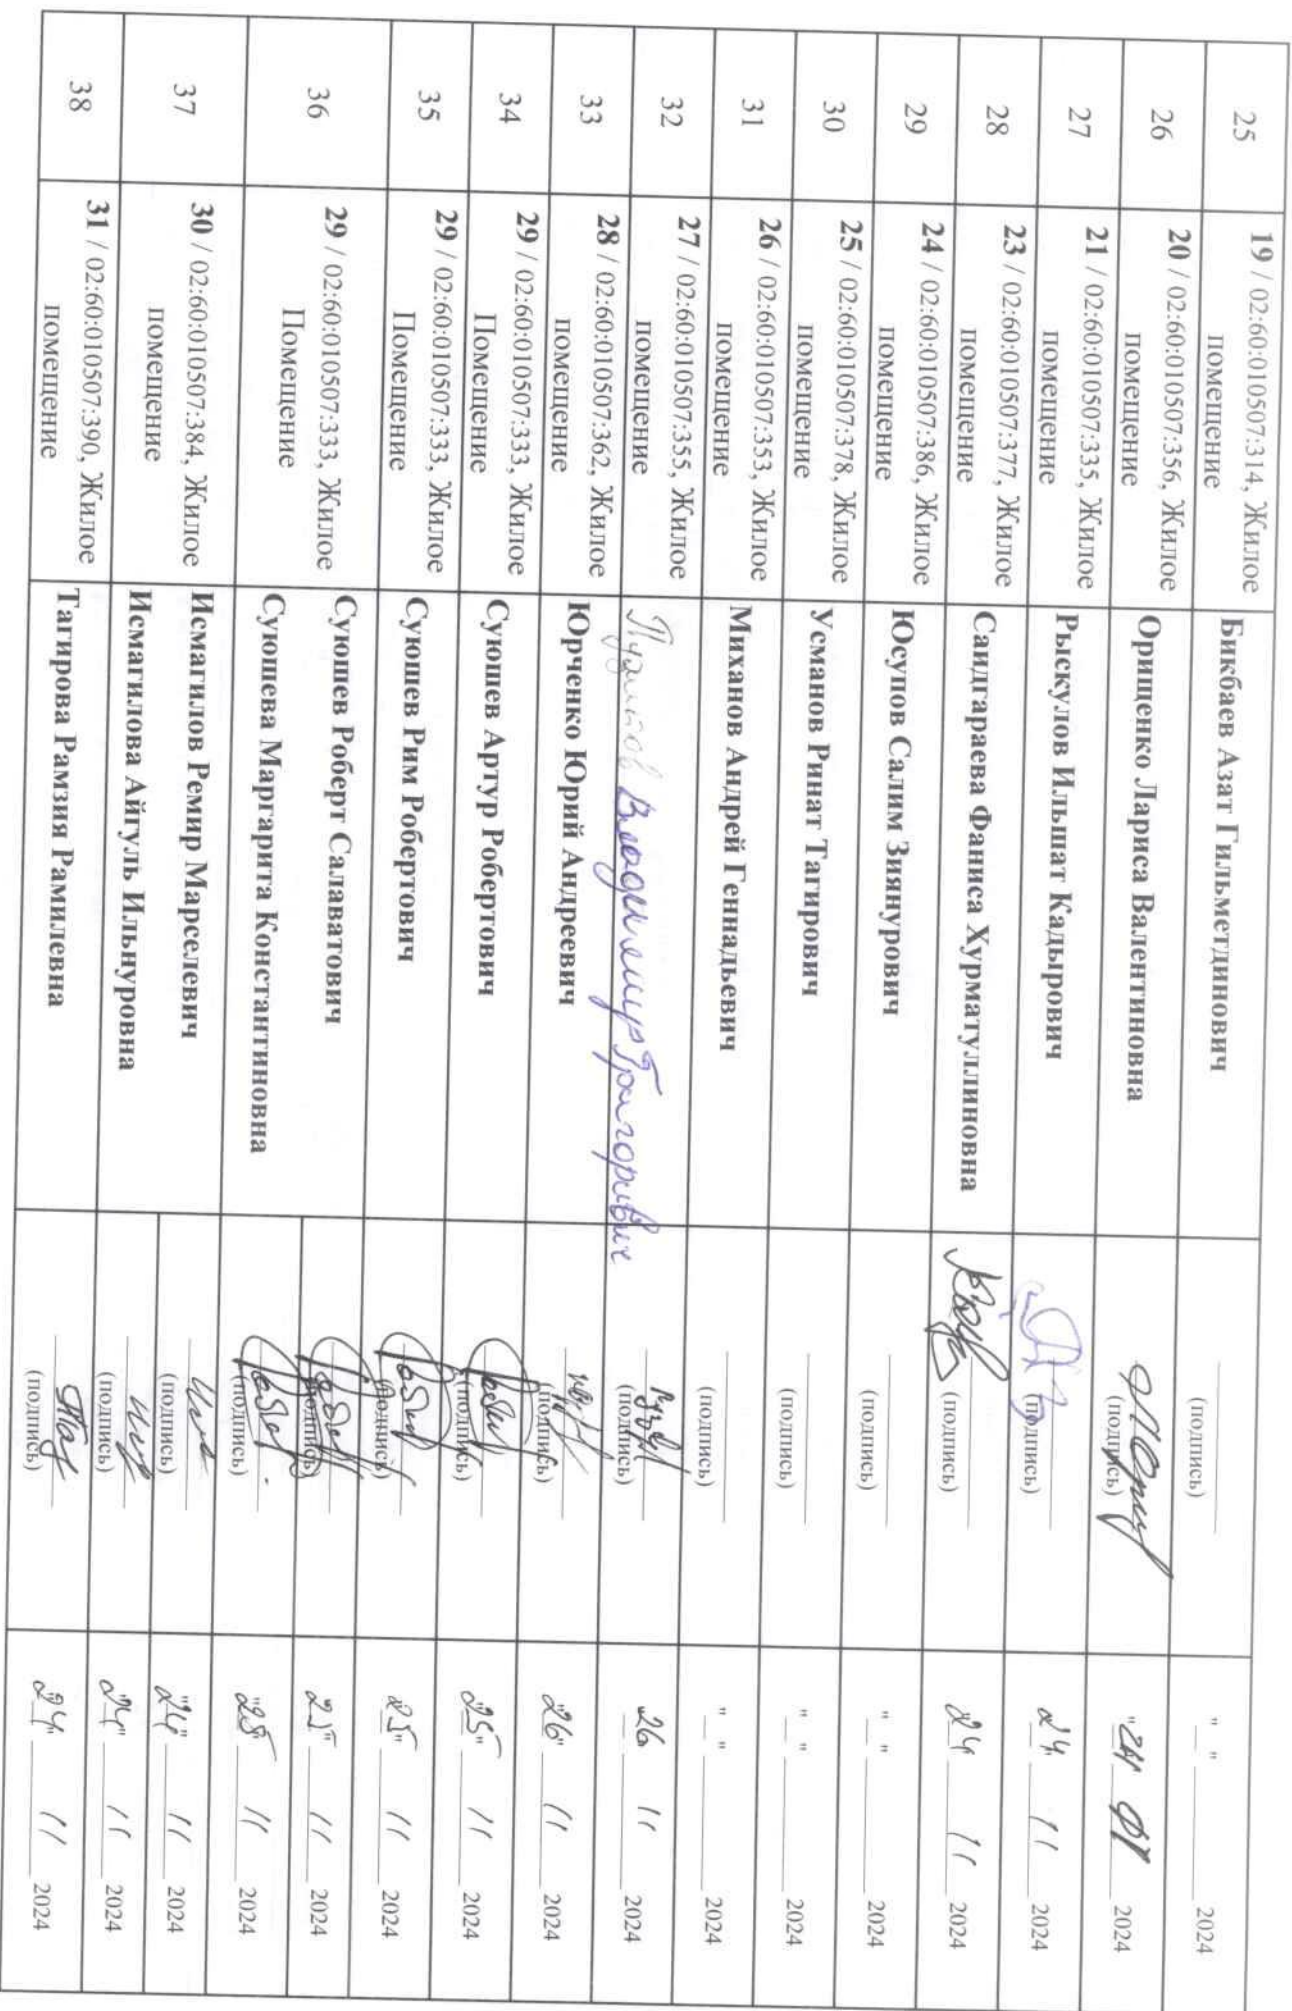 25 19 / 02:60:010507:314, Жилое помещение Бикбаев Азат Гильметдинович (подпись) "__" ________ 2024
26 20 / 02:60:010507:356, Жилое помещение Орищенко Лариса Валентиновна (подпись) "24" 2024
27 21 / 02:60:010507:335, Жилое помещение Рыскулов Ильшат Кадырович (подпись) 24 11 2024
28 23 / 02:60:010507:377, Жилое помещение Саидгараева Фаниса Хурматуллиновна (подпись) 24 11 2024
29 24 / 02:60:010507:386, Жилое помещение Юсупов Салим Зиянурович (подпись) "__" ________ 2024
30 25 / 02:60:010507:378, Жилое помещение Усманов Ринат Тагирович (подпись) "__" ________ 2024
31 26 / 02:60:010507:353, Жилое помещение Миханов Андрей Геннадьевич (подпись) "__" ________ 2024
32 27 / 02:60:010507:355, Жилое помещение Владимир Григорьевич (подпись) 26 11 2024
33 28 / 02:60:010507:362, Жилое помещение Юрченко Юрий Андреевич (подпись) "26" 11 2024
34 29 / 02:60:010507:333, Жилое Помещение Суюшев Артур Робертович (подпись) "25" 11 2024
35 29 / 02:60:010507:333, Жилое Помещение Суюшев Рим Робертович (подпись) "25" 11 2024
36 29 / 02:60:010507:333, Жилое Помещение Суюшев Роберт Салаватович (подпись) "25" 11 2024
Суюшева Маргарита Константиновна (подпись) "25" 11 2024
37 30 / 02:60:010507:384, Жилое помещение Исмагилов Ремир Марселевич (подпись) "24" 11 2024
Исмагилова Айгуль Ильнуровна (подпись) "24" 11 2024
38 31 / 02:60:010507:390, Жилое помещение Тагирова Рамзия Рамилевна (подпись) "24" 11 2024